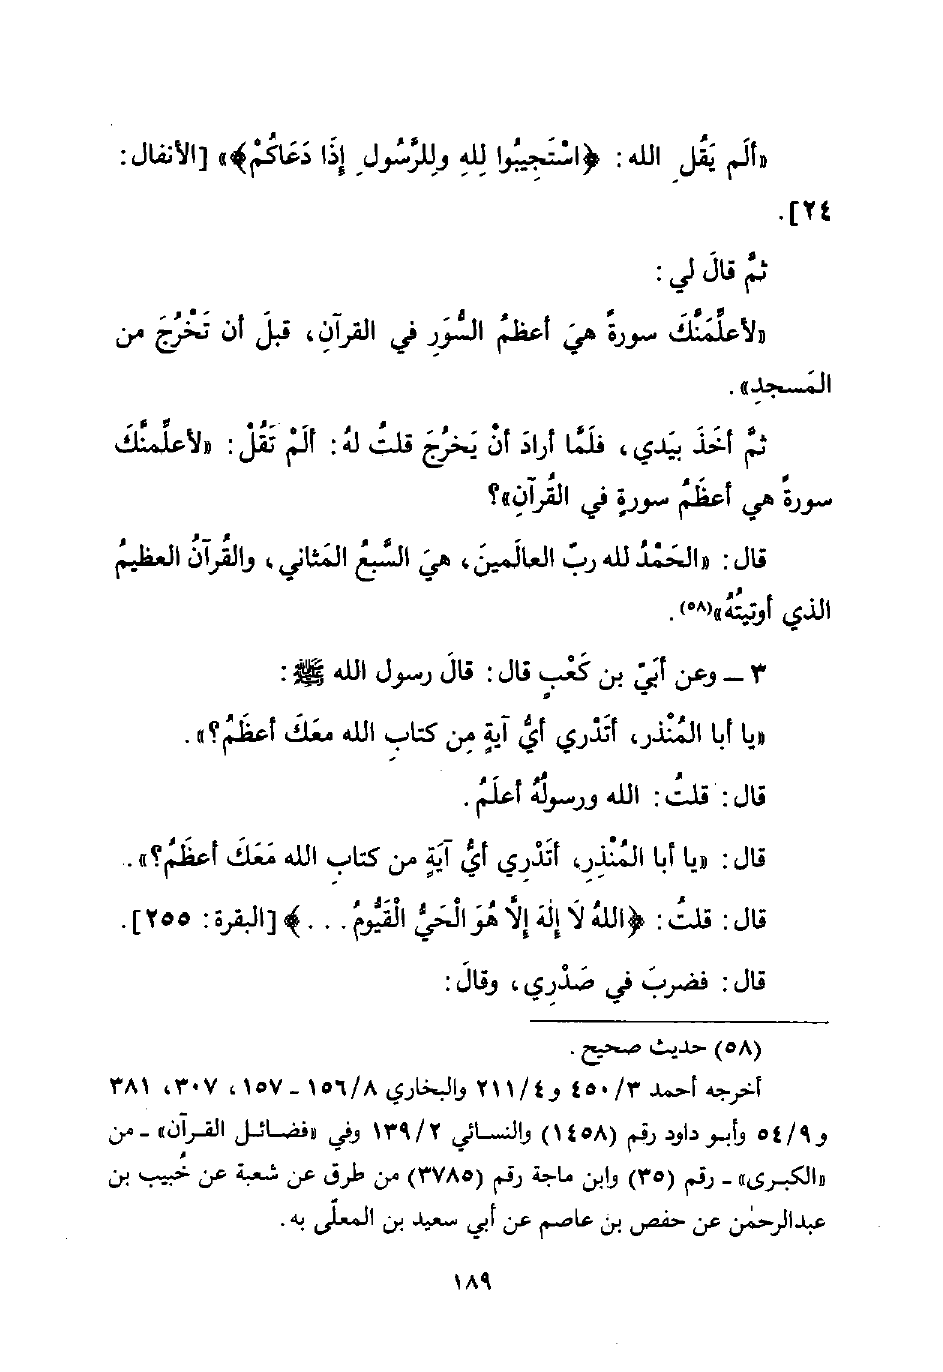 «ألَم يَقُلِ الله : ﴿اسْتَجِيبُوا لِلهِ ولِلرَّسُولِ إِذَا دَعَاكُمْ﴾» [الأنفال :
٢٤].
ثمَّ قالَ لي :
«لأعلِّمَنَّكَ سورةً هيَ أعظمُ السُّوَرِ في القرآنِ، قبلَ أن تَخْرُجَ من
المَسجدِ».
ثمَّ أخَذَ بيَدي، فلَمَّا أرادَ أنْ يَخرُجَ قلتُ لهُ : ألَمْ تَقُلْ : «لأعلِّمنَّكَ
سورةً هي أعظَمُ سورةٍ في القُرآنِ»؟
قال : «الحَمْدُ لله ربّ العالَمينَ، هيَ السَّبعُ المَثاني، والقُرآنُ العظيمُ
الذي أوتيتُهُ»(٥٨).
٣ ـ وعن أبَيّ بن كَعْبٍ قال : قالَ رسول الله ﷺ :
«يا أبا المُنْذر، أتَدْري أيُّ آيةٍ مِن كتابِ الله معَكَ أعظَمُ؟».
قال : قلتُ : الله ورسولُهُ أعلَمُ.
قال : «يا أبا المُنْذِرِ، أتَدْرِي أيُّ آيَةٍ من كتابِ الله مَعَكَ أعظَمُ؟».
قال : قلتُ : ﴿اللهُ لَا إِلٰهَ إِلَّا هُوَ الْحَيُّ الْقَيُّومُ . . .﴾ [البقرة : ٢٥٥].
قال : فضربَ في صَدْرِي، وقالَ :
(٥٨) حديث صحيح.
أخرجه أحمد ٤٥٠/٣ و٢١١/٤ والبخاري ١٥٦/٨ ـ ١٥٧، ٣٠٧، ٣٨١
و٥٤/٩ وأبو داود رقم (١٤٥٨) والنسائي ١٣٩/٢ وفي «فضائل القرآن» ـ من
«الكبرى» ـ رقم (٣٥) وابن ماجة رقم (٣٧٨٥) من طرق عن شعبة عن خُبيب بن
عبدالرحمٰن عن حفص بن عاصم عن أبي سعيد بن المعلّى به.
١٨٩